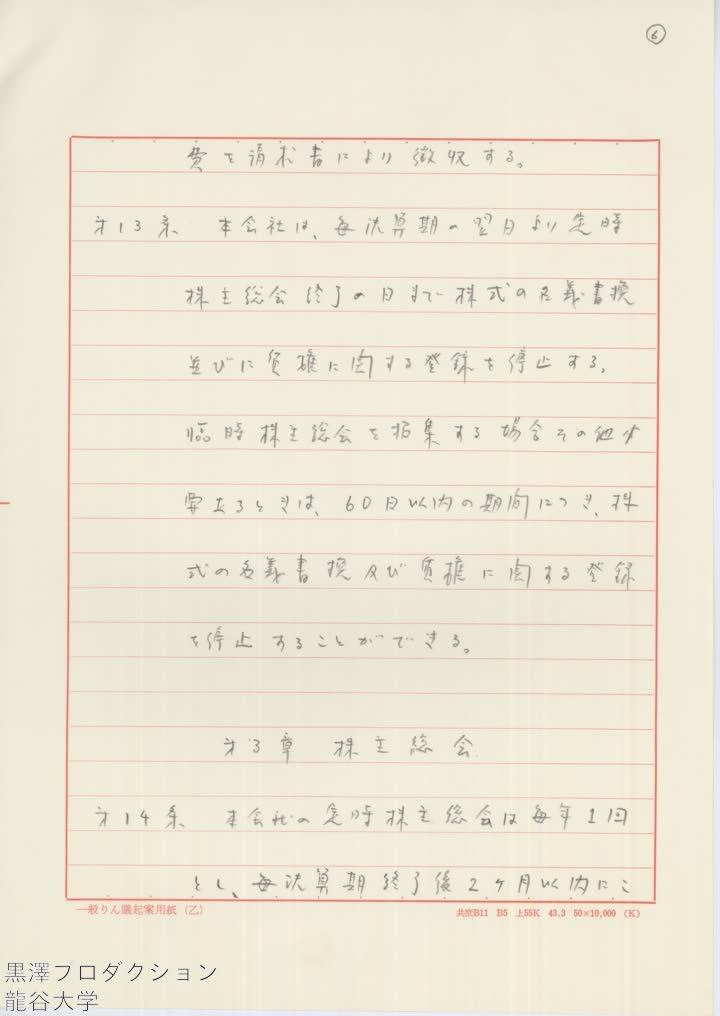 ⑥
費を請求書により徴収する。
才13条 本会社は、毎決算期の翌日より定時
株主総会終了の日まで株式の名義書換
並びに質権に関する登録を停止する。
臨時株主総会を招集する場合その他必
要あるときは、60日以内の期間につき、株
式の名義書換及び質権に関する登録
を停止することができる。
才3章 株主総会
才14条 本会社の定時株主総会は毎年1回
とし、毎決算期終了後2ヶ月以内にこ
一般りん議起案用紙(乙)
共済B11 B5 上55K 43.3 50×10,000 (K)
黒澤プロダクション
龍谷大学